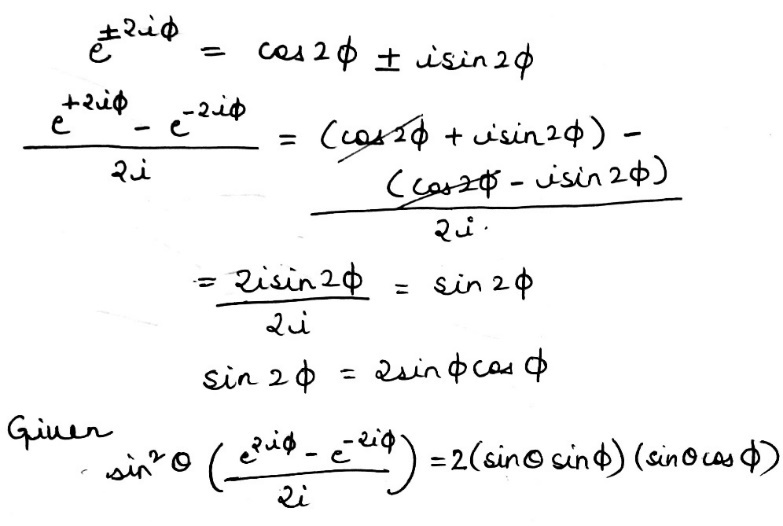 e^{±2iϕ} = cos2ϕ ± isin2ϕ
\frac{e^{+2iϕ} - e^{-2iϕ}}{2i} = \frac{(cos2ϕ + isin2ϕ) - (cos2ϕ - isin2ϕ)}{2i.}
= \frac{2isin2ϕ}{2i} = sin2ϕ
sin2ϕ = 2sinϕcosϕ
Given
sin²θ (\frac{e^{2iϕ} - e^{-2iϕ}}{2i}) = 2(sinθ sinϕ)(sinθ cosϕ)